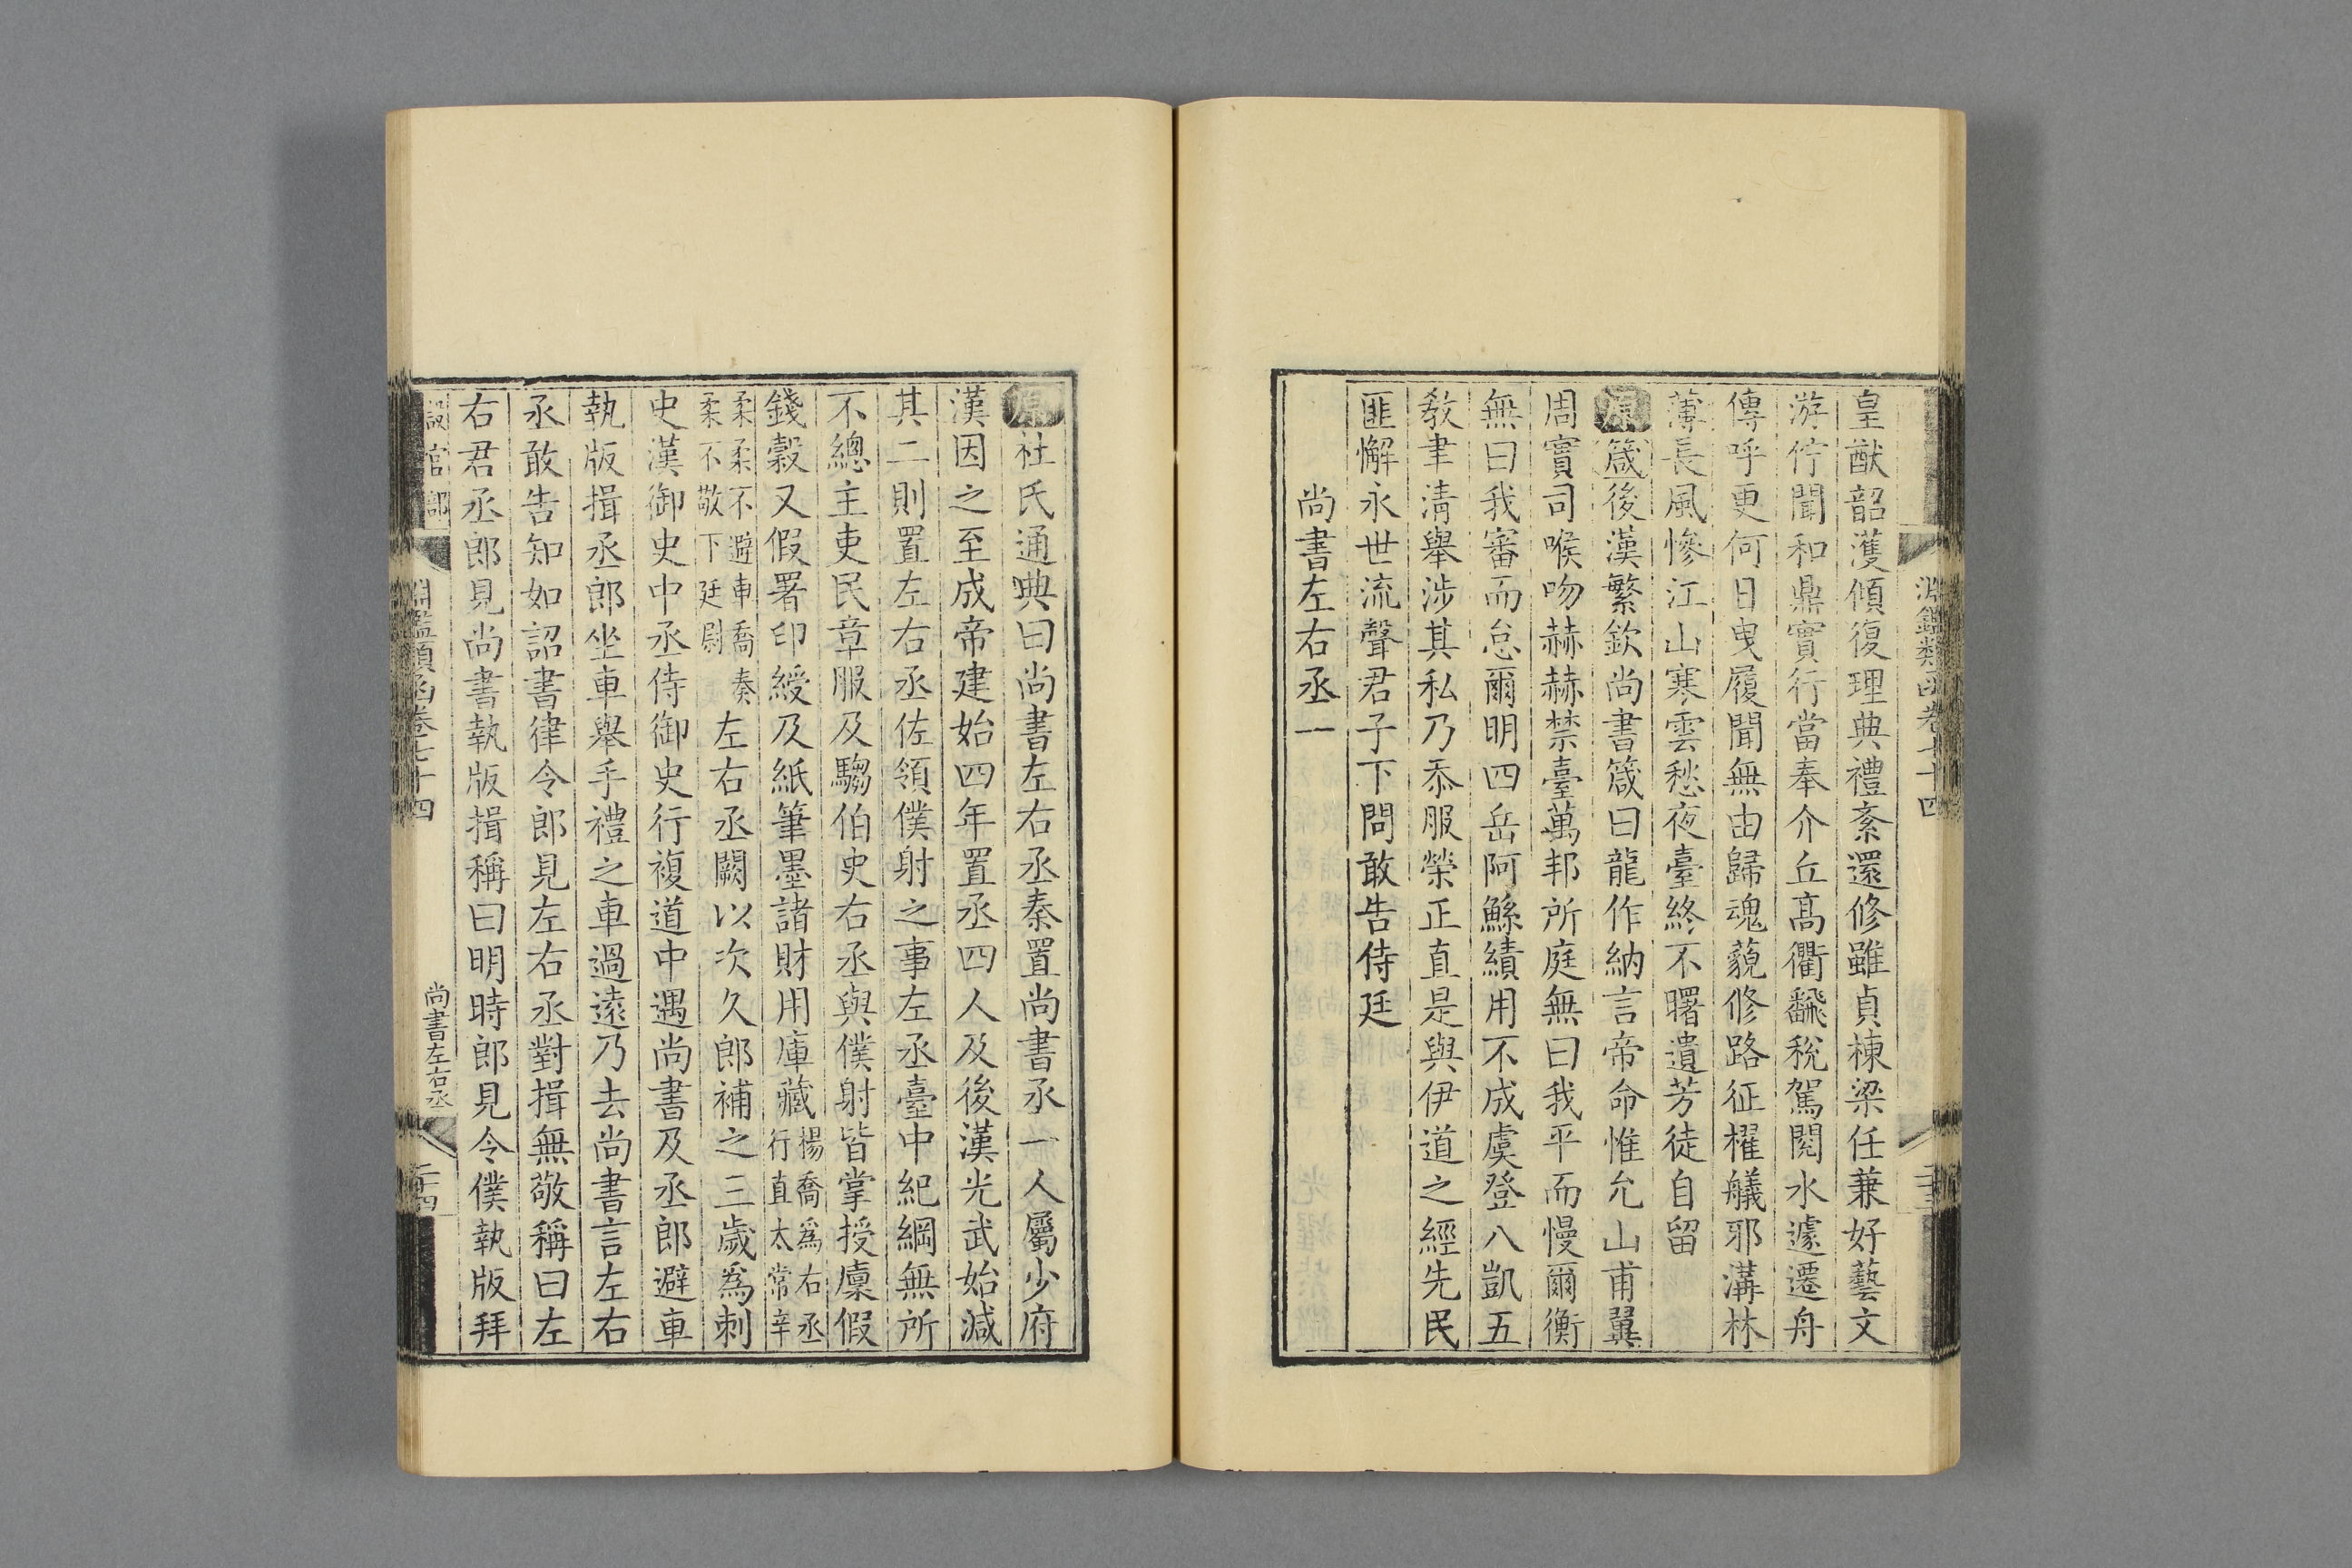 淵鑑類函卷七十四
皇猷韶濩傾復理典禮紊還修雖貞棟梁任兼好藝文
游佇聞和鼎實行當奉介丘高衢飜稅駕閱水遽遷舟
傳呼更何日曳履聞無由歸魂藐修路征櫂艤邪溝林
薄長風慘江山寒雲愁夜臺終不曙遺芳徒自留
原箴後漢繁欽尚書箴曰龍作納言帝命惟允山甫翼
周實司喉吻赫赫禁臺萬邦所庭無曰我平而慢爾衡
無曰我審而怠爾明四岳阿鯀績用不成虞登八凱五
教聿清舉涉其私乃忝服榮正直是與伊道之經先民
匪懈永世流聲君子下問敢告侍廷
尚書左右丞一
原杜氏通典曰尚書左右丞秦置尚書丞一人屬少府
漢因之至成帝建始四年置丞四人及後漢光武始減
其二則置左右丞佐領僕射之事左丞臺中紀綱無所
不總主吏民章服及騶伯史右丞與僕射皆掌授廩假
錢穀又假署印綬及紙筆墨諸財用庫藏楊喬爲右丞行直太常辛
柔柔不避車喬奏柔不敬下廷尉左右丞闕以次久郎補之三歲爲刺
史漢御史中丞侍御史行複道中遇尚書及丞郎避車
執版揖丞郎坐車舉手禮之車過遠乃去尚書言左右
丞敢告知如詔書律令郎見左右丞對揖無敬稱曰左
右君丞郎見尚書執版揖稱曰明時郎見令僕執版拜
設官部 淵鑑類函卷七十四 尚書左右丞 二十四